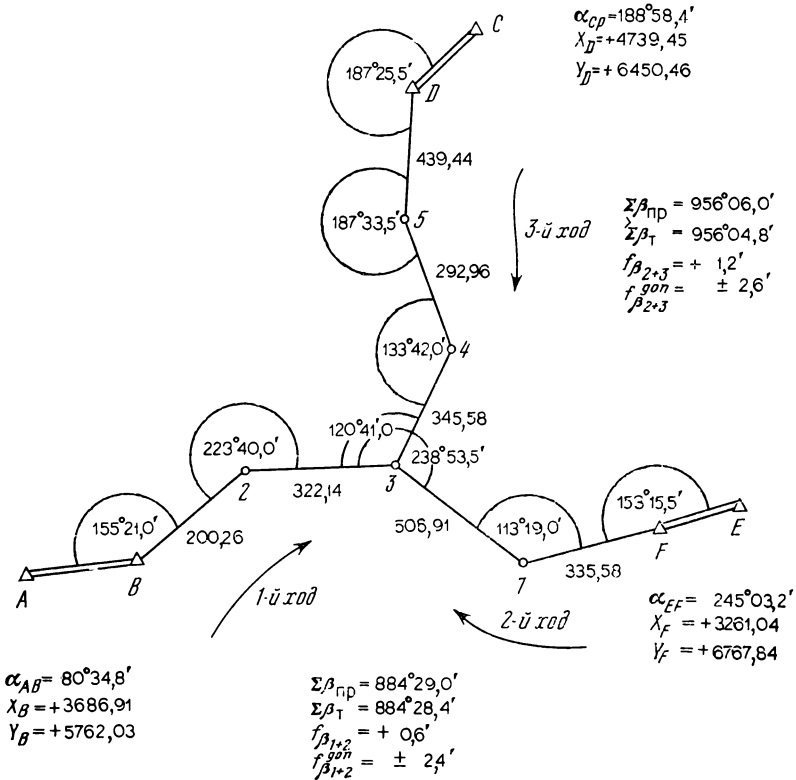 C
α_CD=188°58,4'
X_D=+4739,45
Y_D=+6450,46
187°25,5'
D
439,44
187°33,5'
5
3-й ход
Σβ_пр = 956°06,0'
Σβ_т = 956°04,8'
f_β2+3 = + 1,2'
f^доп_β2+3 = ± 2,6'
292,96
133°42,0'
4
345,58
120°41,0
223°40,0'
238°53,5'
2
322,14
3
155°21,0'
200,26
506,91
113°19,0'
153°15,5'
E
F
A
B
7
335,58
1-й ход
2-й ход
α_EF= 245°03,2'
X_F = +3261,04
Y_F = +6767,84
α_AB= 80°34,8'
X_B=+3686,91
Y_B=+5762,03
Σβ_пр = 884°29,0'
Σβ_т = 884°28,4'
f_β1+2 = + 0,6'
f^доп_β1+2 = ± 2,4'